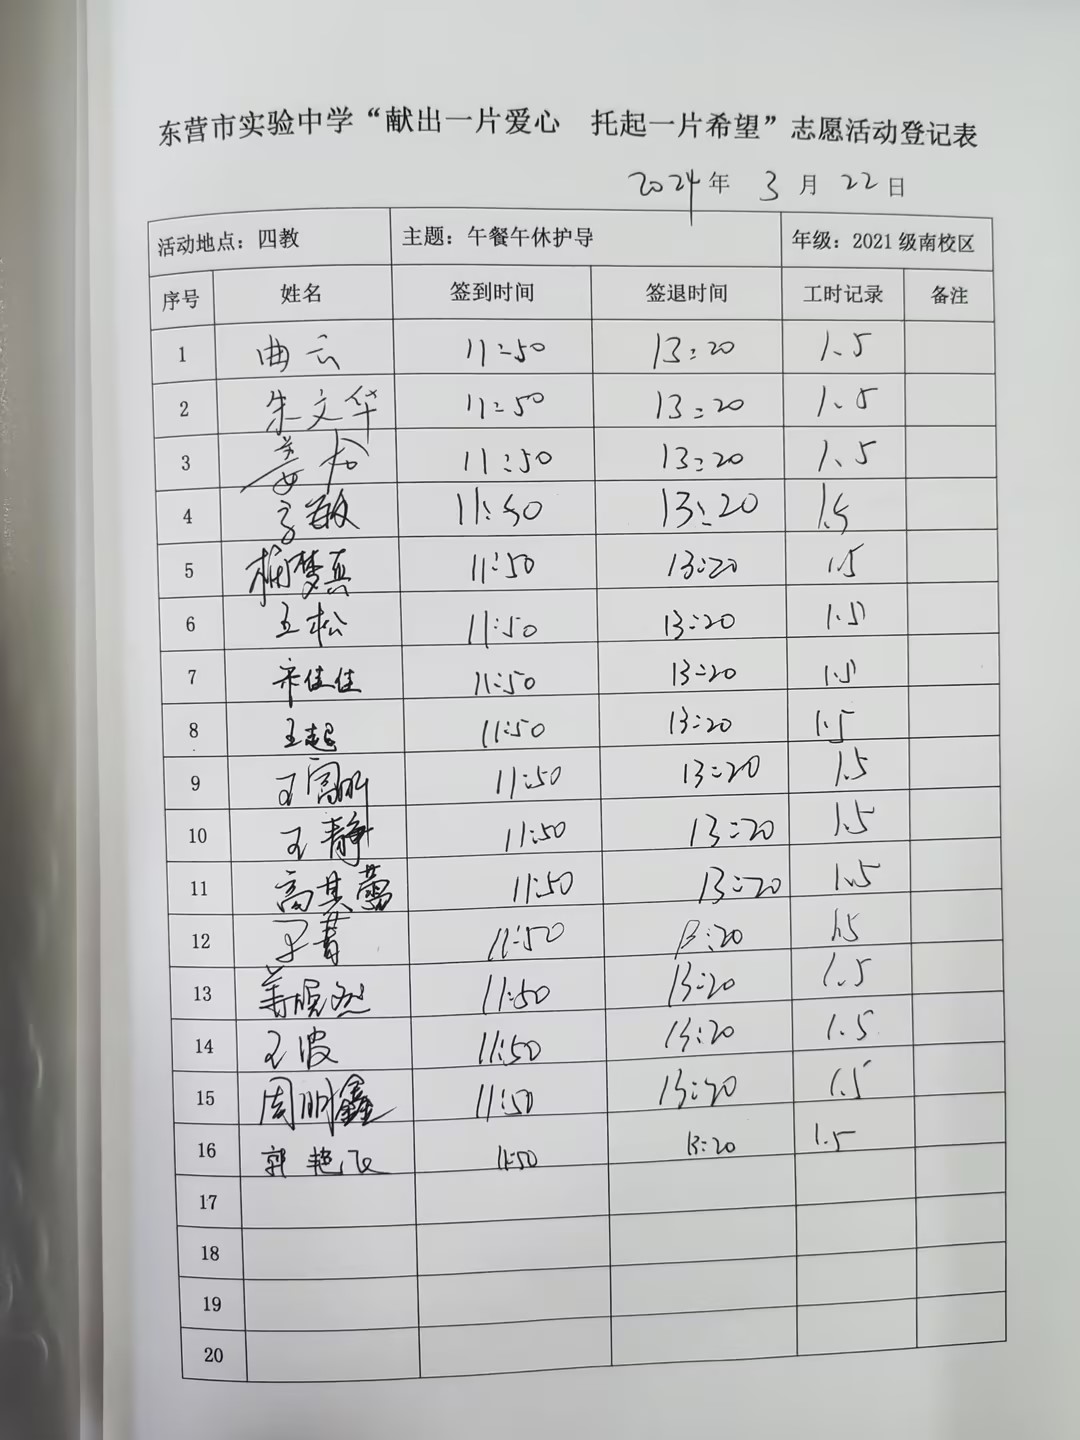 东营市实验中学“献出一片爱心 托起一片希望”志愿活动登记表
2024年 3月 22日
活动地点：四教 主题：午餐午休护导 年级：2021级南校区
序号 姓名 签到时间 签退时间 工时记录 备注
1 曲云 11:50 13:20 1.5
2 朱文华 11:50 13:20 1.5
3 姜 11:50 13:20 1.5
4 敏 11:50 13:20 1.5
5 梦真 11:50 13:20 1.5
6 王松 11:50 13:20 1.5
7 宋佳佳 11:50 13:20 1.5
8 王超 11:50 13:20 1.5
9 王 11:50 13:20 1.5
10 王静 11:50 13:20 1.5
11 高其蕾 11:50 13:20 1.5
12 11:50 13:20 1.5
13 11:50 13:20 1.5
14 王波 11:50 13:20 1.5
15 周明鑫 11:50 13:20 1.5
16 郭艳飞 11:50 13:20 1.5
17
18
19
20